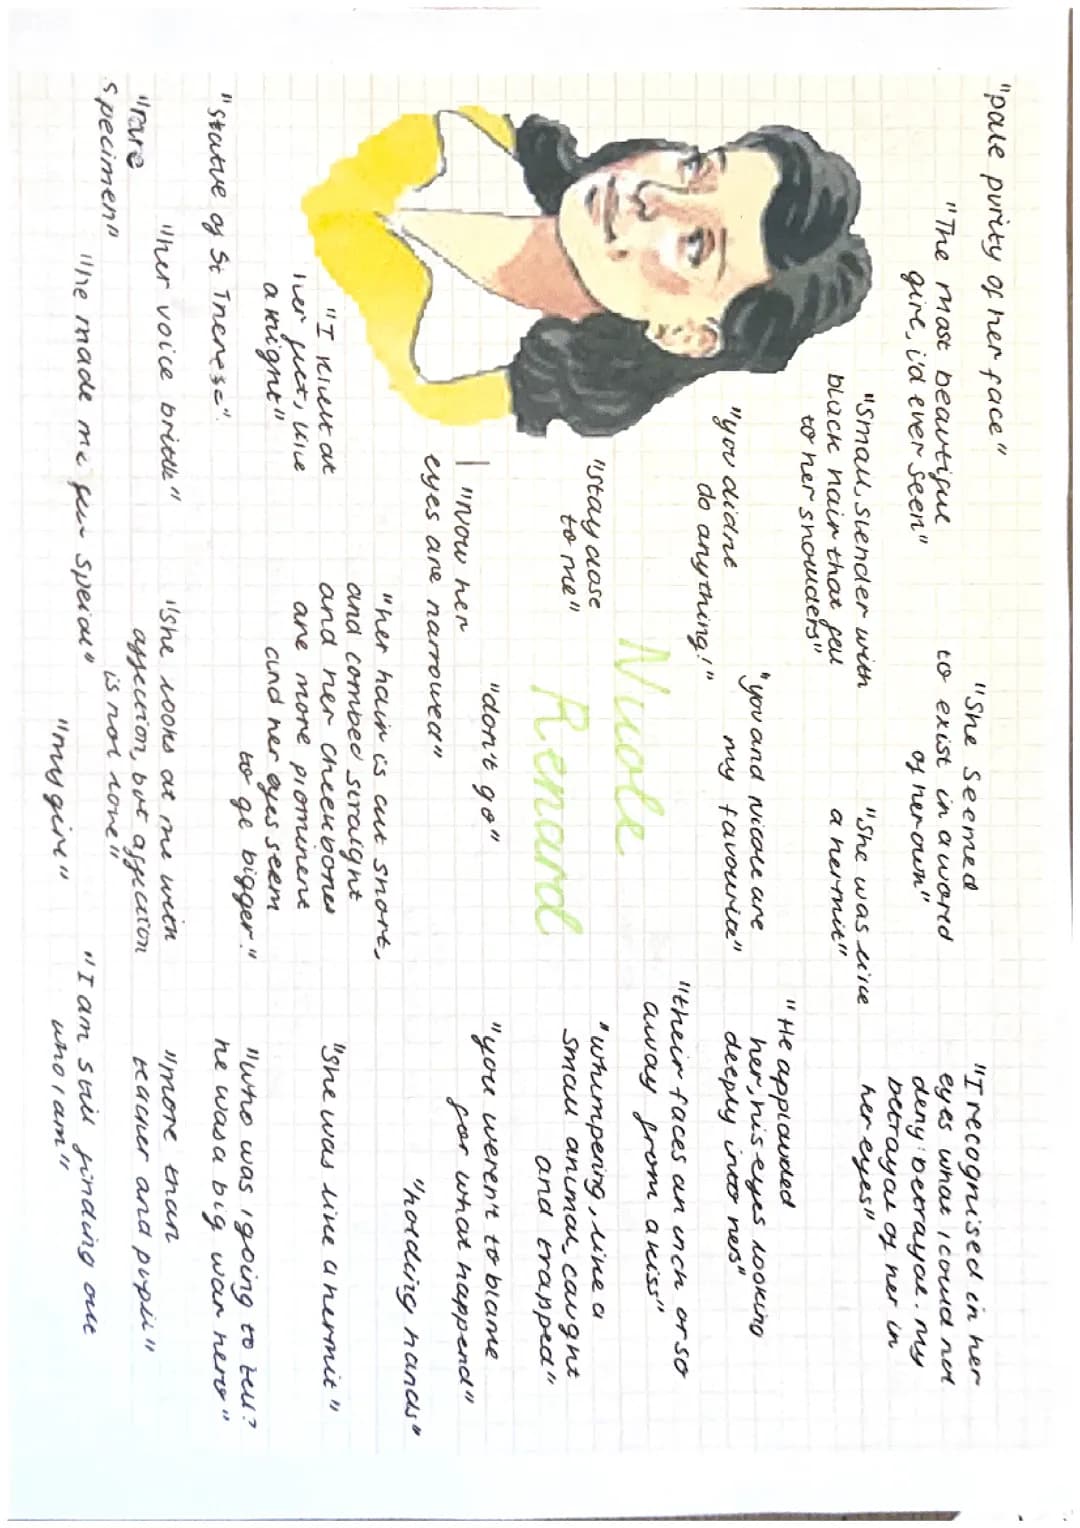 "pale purity of her face"
"The most beautiful
girl, i'd ever seen"
"She seemed
to exist in a world
of her own"
"I recognised in her
eyes what I could not
deny: betrayal. my
betrayal of her in
her eyes"
"Small, slender with
black hair that fell
to her shoulders"
"She was like
a hermit"
"He applauded
her, his eyes looking
deeply into hers"
"you didnt
do anything!"
"you and nicole are
my favourite"
"their faces an inch or so
away from a kiss"
"stay close
to me"
Nicole
Renard
"whimpering, like a
small animal caught
and trapped"
"Now her
eyes are narrowed"
"don't go"
"you weren't to blame
for what happend"
"holding hands"
"I knelt at
her feet, like
a knight"
"her hair is cut short,
and combed straight
and her cheekbones
are more prominent
and her eyes seem
to ge bigger."
"She was like a hermit"
"statue of St Therese"
"who was i going to tell?
he was a big war hero"
"her voice brittle"
"rare
specimen"
"She looks at me with
affection, but affection
is not love"
"more than
teacher and pupil"
"He made me feel special"
"my girl"
"I am still finding out
who I am"